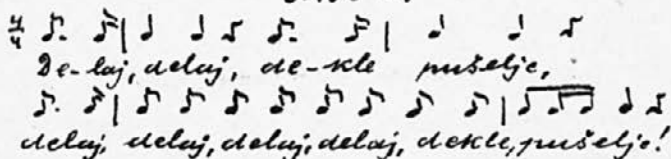 4/4
De-laj, delaj, de-kle pušeljc,
delaj, delaj, delaj, delaj, dekle, pušeljc!